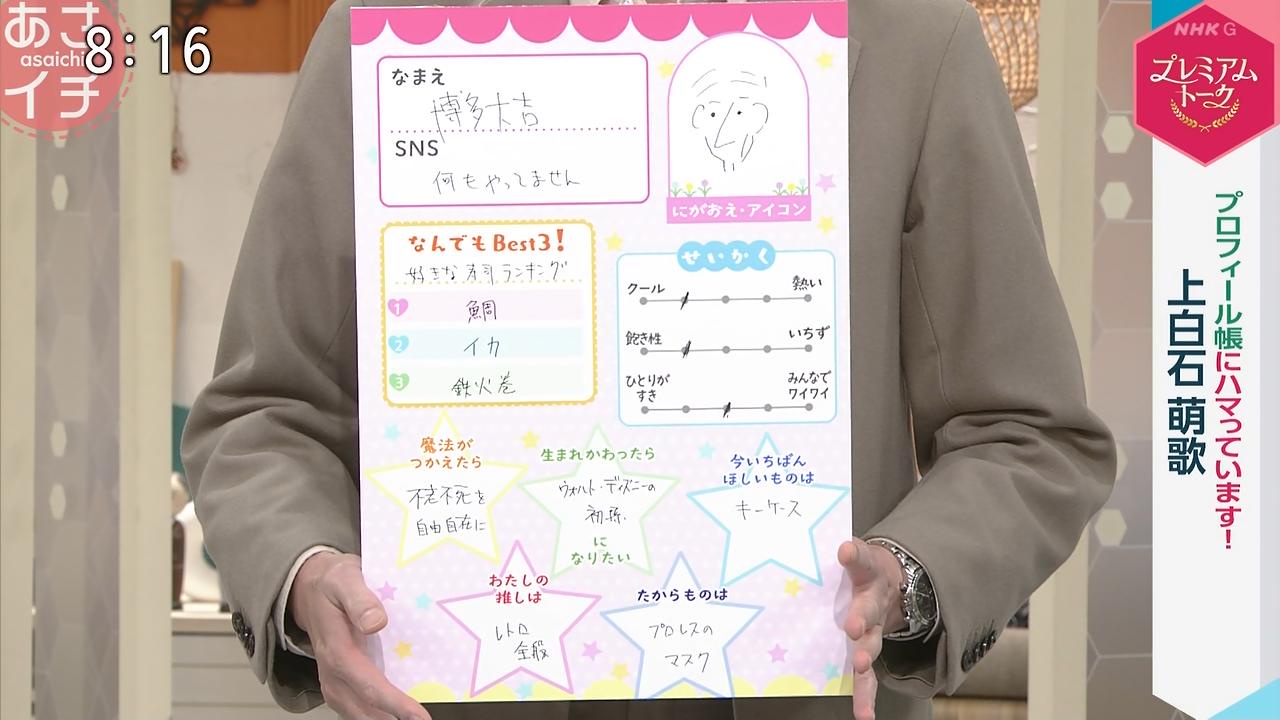 あさ
asaichi
イチ
8:16
NHK G
プレミアム
トーク
プロフィール帳にハマっています!
上白石 萌歌
なまえ
博多大吉
SNS
何もやってません
にがおえ・アイコン
なんでもBest3!
好きな寿司ランキング
1 鯛
2 イカ
3 鉄火巻
せいかく
クール 熱い
飽き性 いちず
ひとりが
すき
みんなで
ワイワイ
魔法が
つかえたら
不老不死を
自由自在に
生まれかわったら
ウォルト・ディズニーの
初孫
に
なりたい
今いちばん
ほしいものは
キーケース
わたしの
推しは
レトロ
全般
たからものは
プロレスの
マスク